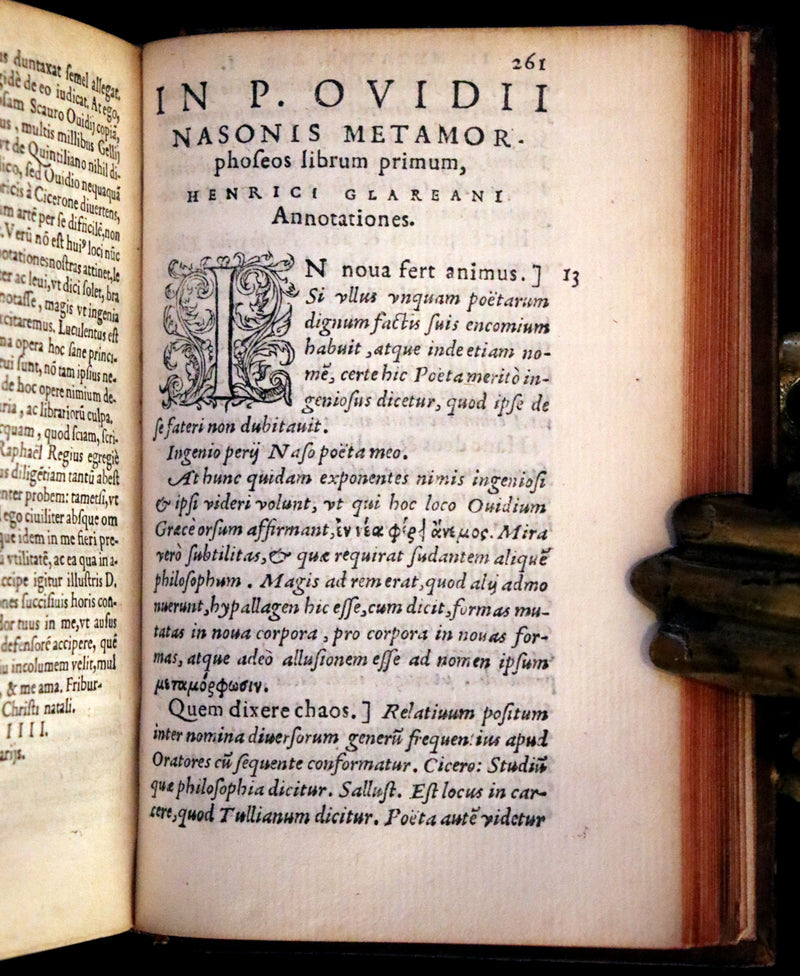 us duntaxat ſemel allegat.
gidè de eo iudicat. At ego,
ſam Scauro Ouidij copiã,
us, multis millibus Gellij
rt de Quintiliano nihil di-
lico, ſed Ouidio nequaquã
ricis à Cicerone diuertens,
m artẽ per ſe difficilẽ, non
. Verũ nõ eſt huiꝰ loci nũc
otationes noſtras attinet, le
ter ac leui, vt dici ſolet, bra
notaſſe, magis vt ingenia
citaremus. Luculentus eſt
na opera hoc ſane princi-
tui ſunt, nõ tam ipſius ne-
de hoc opere nimium de-
uria, ac librariorũ culpa,
cquam, quod ſciam, ſcri-
Raphaël Regius egregiè
us diligẽtiam tantũ abeſt
nter probem: tametſi, vt
ego ciuiliter abſque om
que idem in me fieri pre-
vtilitatẽ, ac ea qua in a-
ccipe igitur illuſtris D.
nes ſucciſiuis horis con-
dor tuus in me, vt auſus
defenſorẽ accipere, quẽ
u incolumem velit, mul
, & me ama. Fribur-
Chriſti natali.
IIII.
261
IN P. OVIDII
NASONIS METAMOR-
phoſeos librum primum,
HENRICI GLAREANI
Annotationes.
IN noua fert animus.] 13
Si vllus vnquam poëtarum
dignum factis ſuis encomium
habuit, atque inde etiam no-
mẽ, certe hic Poëta meritò in-
genioſus dicetur, quod ipſe de
ſe fateri non dubitauit.
Ingenio perij Naſo poëta meo.
At hunc quidam exponentes nimis ingenioſi
& ipſi videri volunt, vt qui hoc loco Ouidium
Græcè orſum affirmant, ἐν νέα φέρει ἄνεμος. Mira
verò ſubtilitas, & quæ requirat ſudantem aliquẽ
philoſophum. Magis ad rem erat, quod alij admo
nuerunt, hypallagen hic eſſe, cum dicit, formas mu-
tatas in noua corpora, pro corpora in nouas for-
mas, atque adeò alluſionem eſſe ad nomen ipſum
μεταμόρφωσιν.
Quem dixere chaos.] Relatiuum poſitum
inter nomina diuerſorum generũ frequentius apud
Oratores cũ ſequente conformatur. Cicero: Studiũ
quæ philoſophia dicitur. Salluſt. Eſt locus in car-
cere, quod Tullianum dicitur. Poëta autẽ videtur